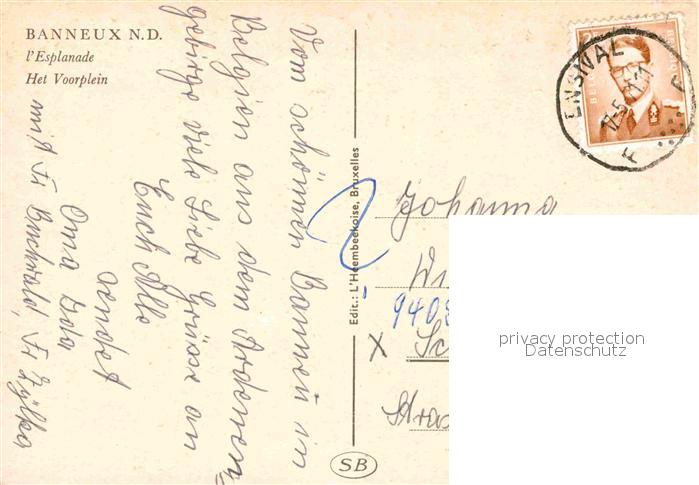 BANNEUX N.D.
l'Esplanade
Het Voorplein
Vom schönnen Banneu in
Belgien aus dem Ardenen
gebirge viele Liebe Grüsse an
Euch Alle
sendet
Oma
mit Fr Buchwald, Fr
Edit.: L'Heembeekoise, Bruxelles
SB
ENSIVAL
BELG
Johanna
Wi
940
x Sc
Stras
privacy protection
Datenschutz